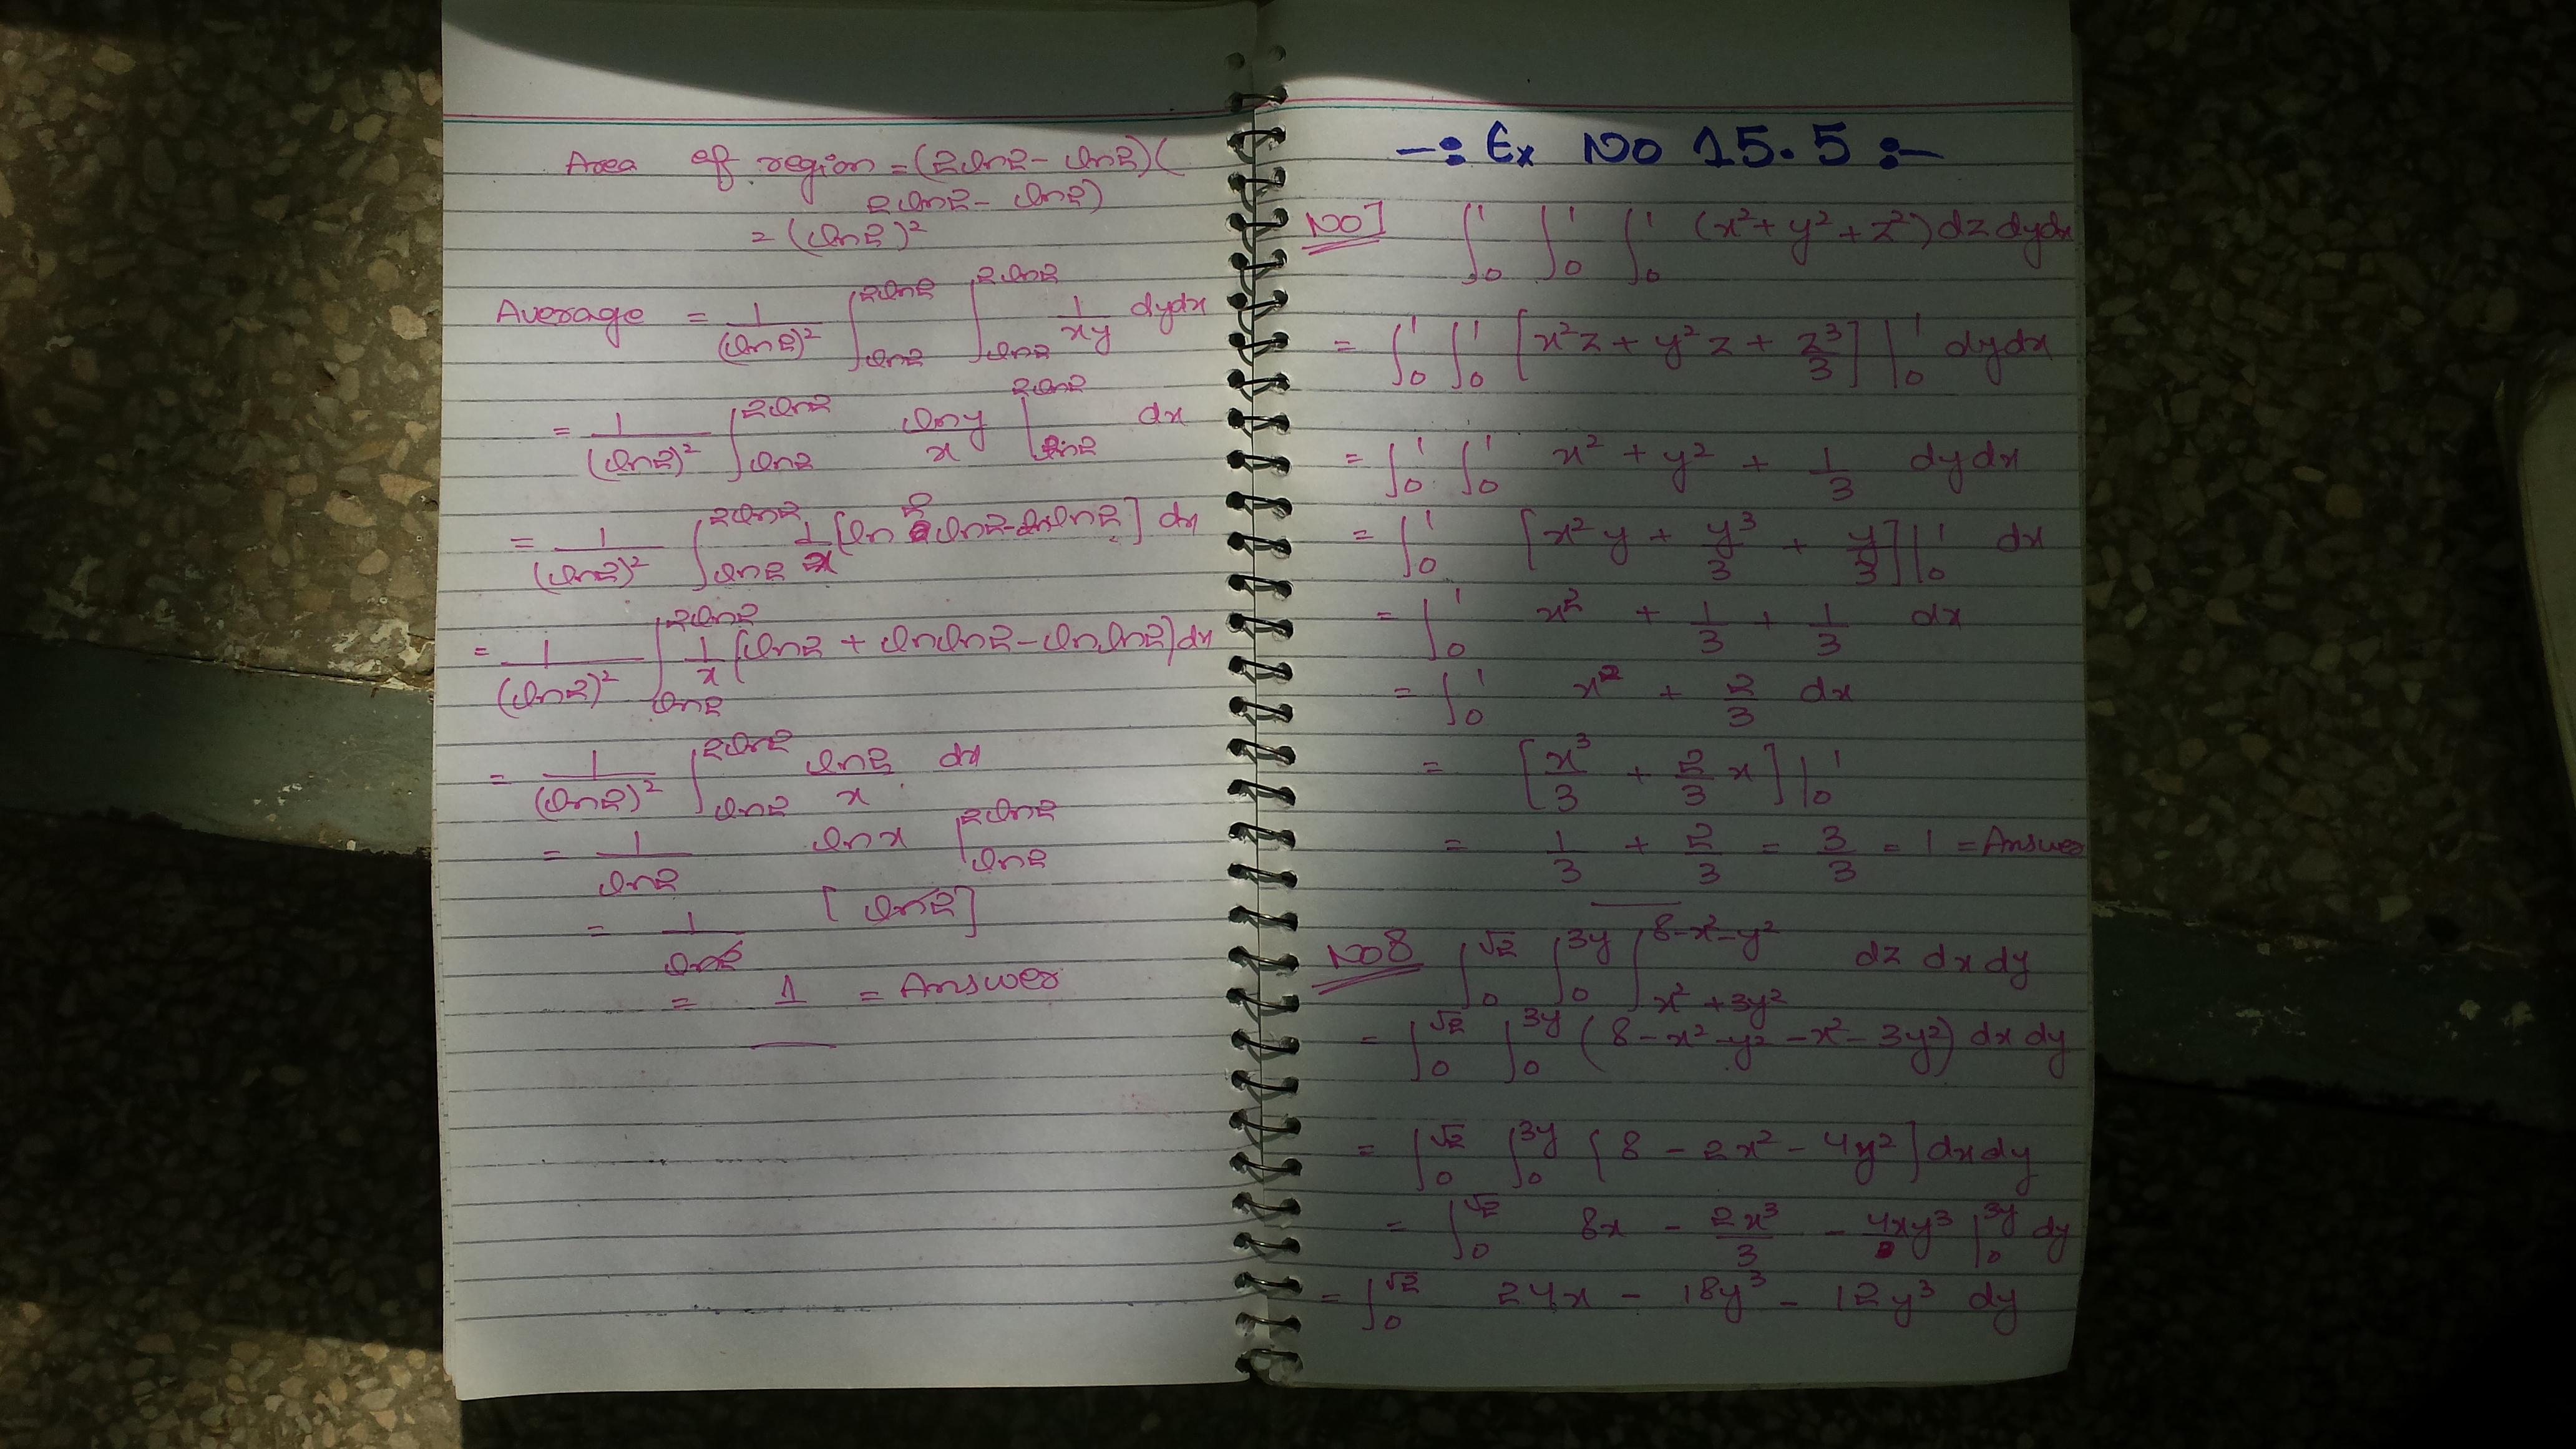 Area of region = (2ln2 - ln2)(
2ln2 - ln2)
= (ln2)²
Average = 1/(ln2)² ∫_ln2^2ln2 ∫_ln2^2ln2 1/xy dydx
= 1/(ln2)² ∫_ln2^2ln2 lny/x |_ln2^2ln2 dx
= 1/(ln2)² ∫_ln2^2ln2 1/x [ln 2ln2 - lnln2] dx
= 1/(ln2)² ∫_ln2^2ln2 1/x [ln2 + lnln2 - lnln2] dx
= 1/(ln2)² ∫_ln2^2ln2 ln2/x dx
= 1/ln2 lnx |_ln2^2ln2
= 1/ln2 [ln2]
= 1 = Answer
-: Ex No 15.5 :-
No 7 ∫_0^1 ∫_0^1 ∫_0^1 (x² + y² + z²) dz dydx
= ∫_0^1 ∫_0^1 [x²z + y²z + z³/3] |_0^1 dydx
= ∫_0^1 ∫_0^1 x² + y² + 1/3 dydx
= ∫_0^1 [x²y + y³/3 + y/3] |_0^1 dx
= ∫_0^1 x² + 1/3 + 1/3 dx
= ∫_0^1 x² + 2/3 dx
= [x³/3 + 2/3 x] |_0^1
= 1/3 + 2/3 = 3/3 = 1 = Answer
No 8 ∫_0^√2 ∫_0^3y ∫_x²+3y²^8-x²-y² dz dx dy
= ∫_0^√2 ∫_0^3y (8 - x² - y² - x² - 3y²) dx dy
= ∫_0^√2 ∫_0^3y [8 - 2x² - 4y²] dx dy
= ∫_0^√2 8x - 2x³/3 - 4xy³ |_0^3y dy
= ∫_0^√2 24x - 18y³ - 12y³ dy